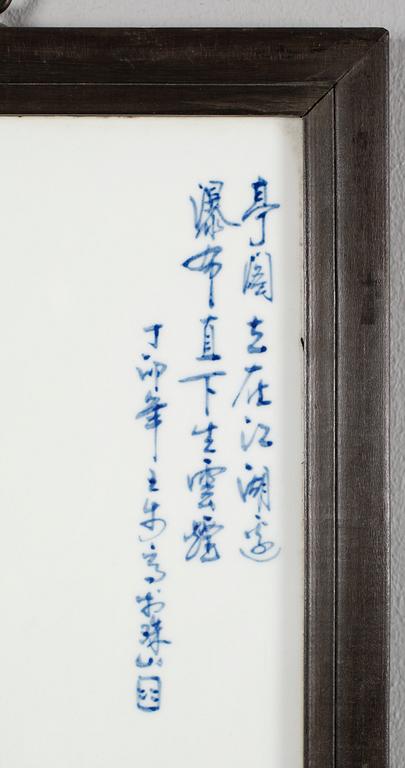 亭阁立在江湖边
瀑布直下生雲煙
丁卯年王步高於珠山